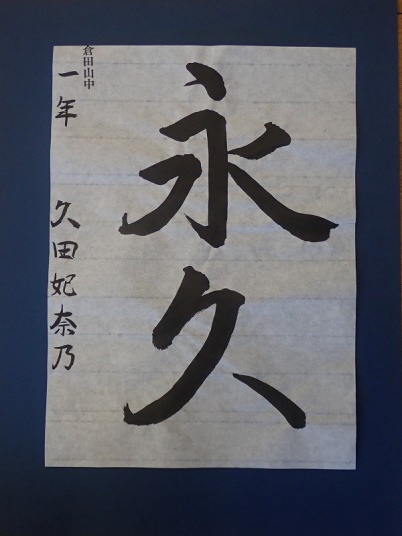 永久
倉田山中
一年 久田妃奈乃